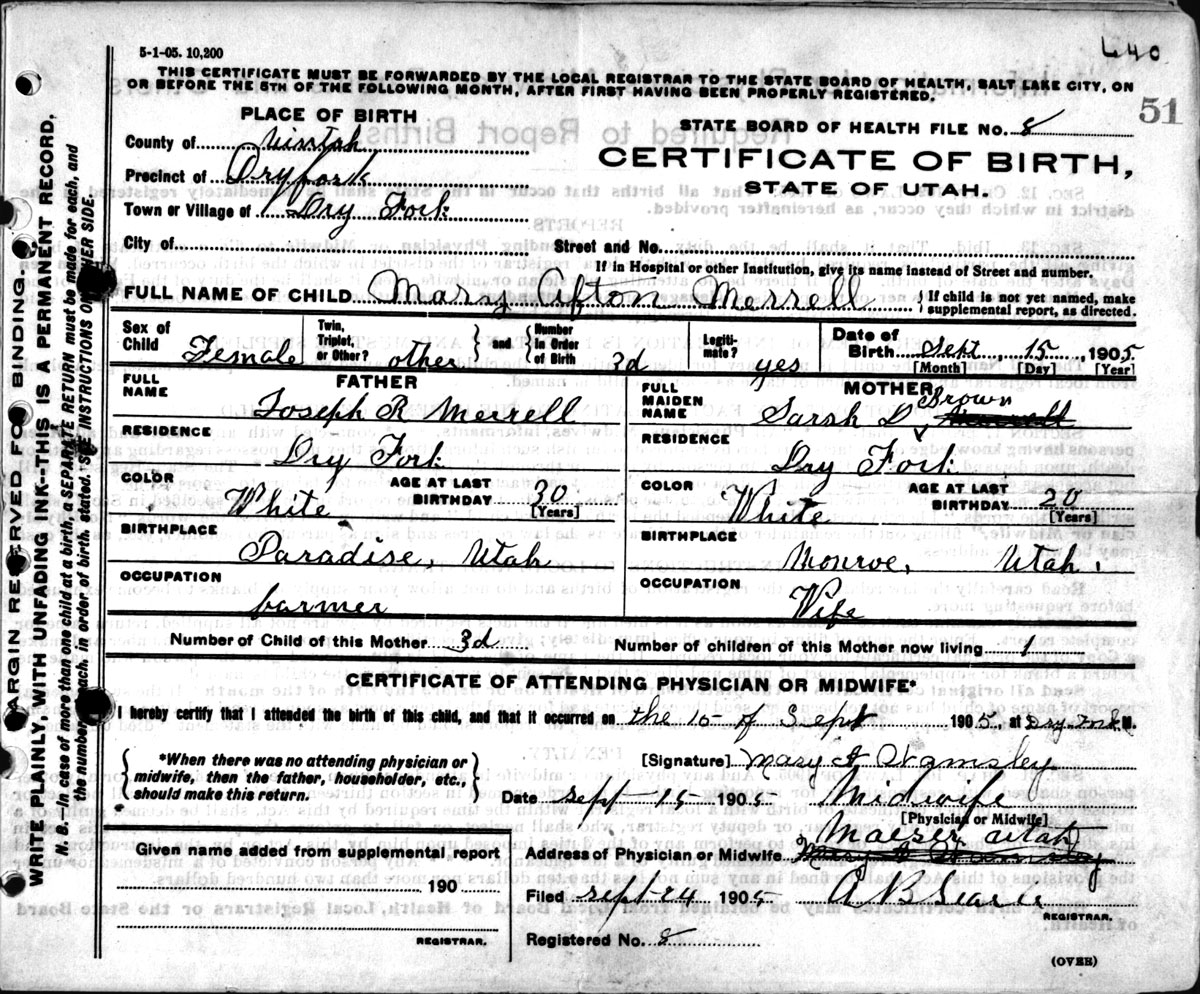 5-1-05. 10,200
640
THIS CERTIFICATE MUST BE FORWARDED BY THE LOCAL REGISTRAR TO THE STATE BOARD OF HEALTH, SALT LAKE CITY, ON
OR BEFORE THE 5TH OF THE FOLLOWING MONTH, AFTER FIRST HAVING BEEN PROPERLY REGISTERED.
51
PLACE OF BIRTH
STATE BOARD OF HEALTH FILE No. 8
County of
CERTIFICATE OF BIRTH,
Precinct of Dry fork
STATE OF UTAH.
Town or Village of Dry Fork
City of Street and No.
If in Hospital or other Institution, give its name instead of Street and number.
FULL NAME OF CHILD Mary Afton Merrell { If child is not yet named, make
supplemental report, as directed.
Sex of Child Female Twin, Triplet, or Other? other } and { Number in Order of Birth 3d Legiti-mate? yes Date of Birth Sept, 15, 1905
[Month] [Day] [Year]
FATHER
FULL NAME Joseph R Merrell
RESIDENCE
Dry Fork
COLOR White AGE AT LAST BIRTHDAY 30
[Years]
BIRTHPLACE
Paradise, Utah
OCCUPATION
farmer
MOTHER
FULL MAIDEN NAME Sarah D Brown Merrell
RESIDENCE
Dry Fork
COLOR White AGE AT LAST BIRTHDAY 20
[Years]
BIRTHPLACE
Monroe, Utah.
OCCUPATION
Wife
Number of Child of this Mother 3d Number of children of this Mother now living 1
CERTIFICATE OF ATTENDING PHYSICIAN OR MIDWIFE*
I hereby certify that I attended the birth of this child, and that it occurred on the 15 of Sept 1905, at Dry Fork M.
{ *When there was no attending physician or
midwife, then the father, householder, etc.,
should make this return. }
[Signature] Mary A Wamsley
Date Sept 15 1905 Midwife
[Physician or Midwife]
Maeser Utah
Given name added from supplemental report
Address of Physician or Midwife
190
Filed Sept 24 1905 A B Searle
REGISTRAR.
REGISTRAR.
Registered No. 8
(OVER)
MARGIN RESERVED FOR BINDING.
WRITE PLAINLY, WITH UNFADING INK--THIS IS PERMANENT RECORD.
N. B.--In case of more than one child at a birth, a SEPARATE RETURN must be made for each, and
the number of each, in order of birth, stated. SEE INSTRUCTIONS ON OTHER SIDE.